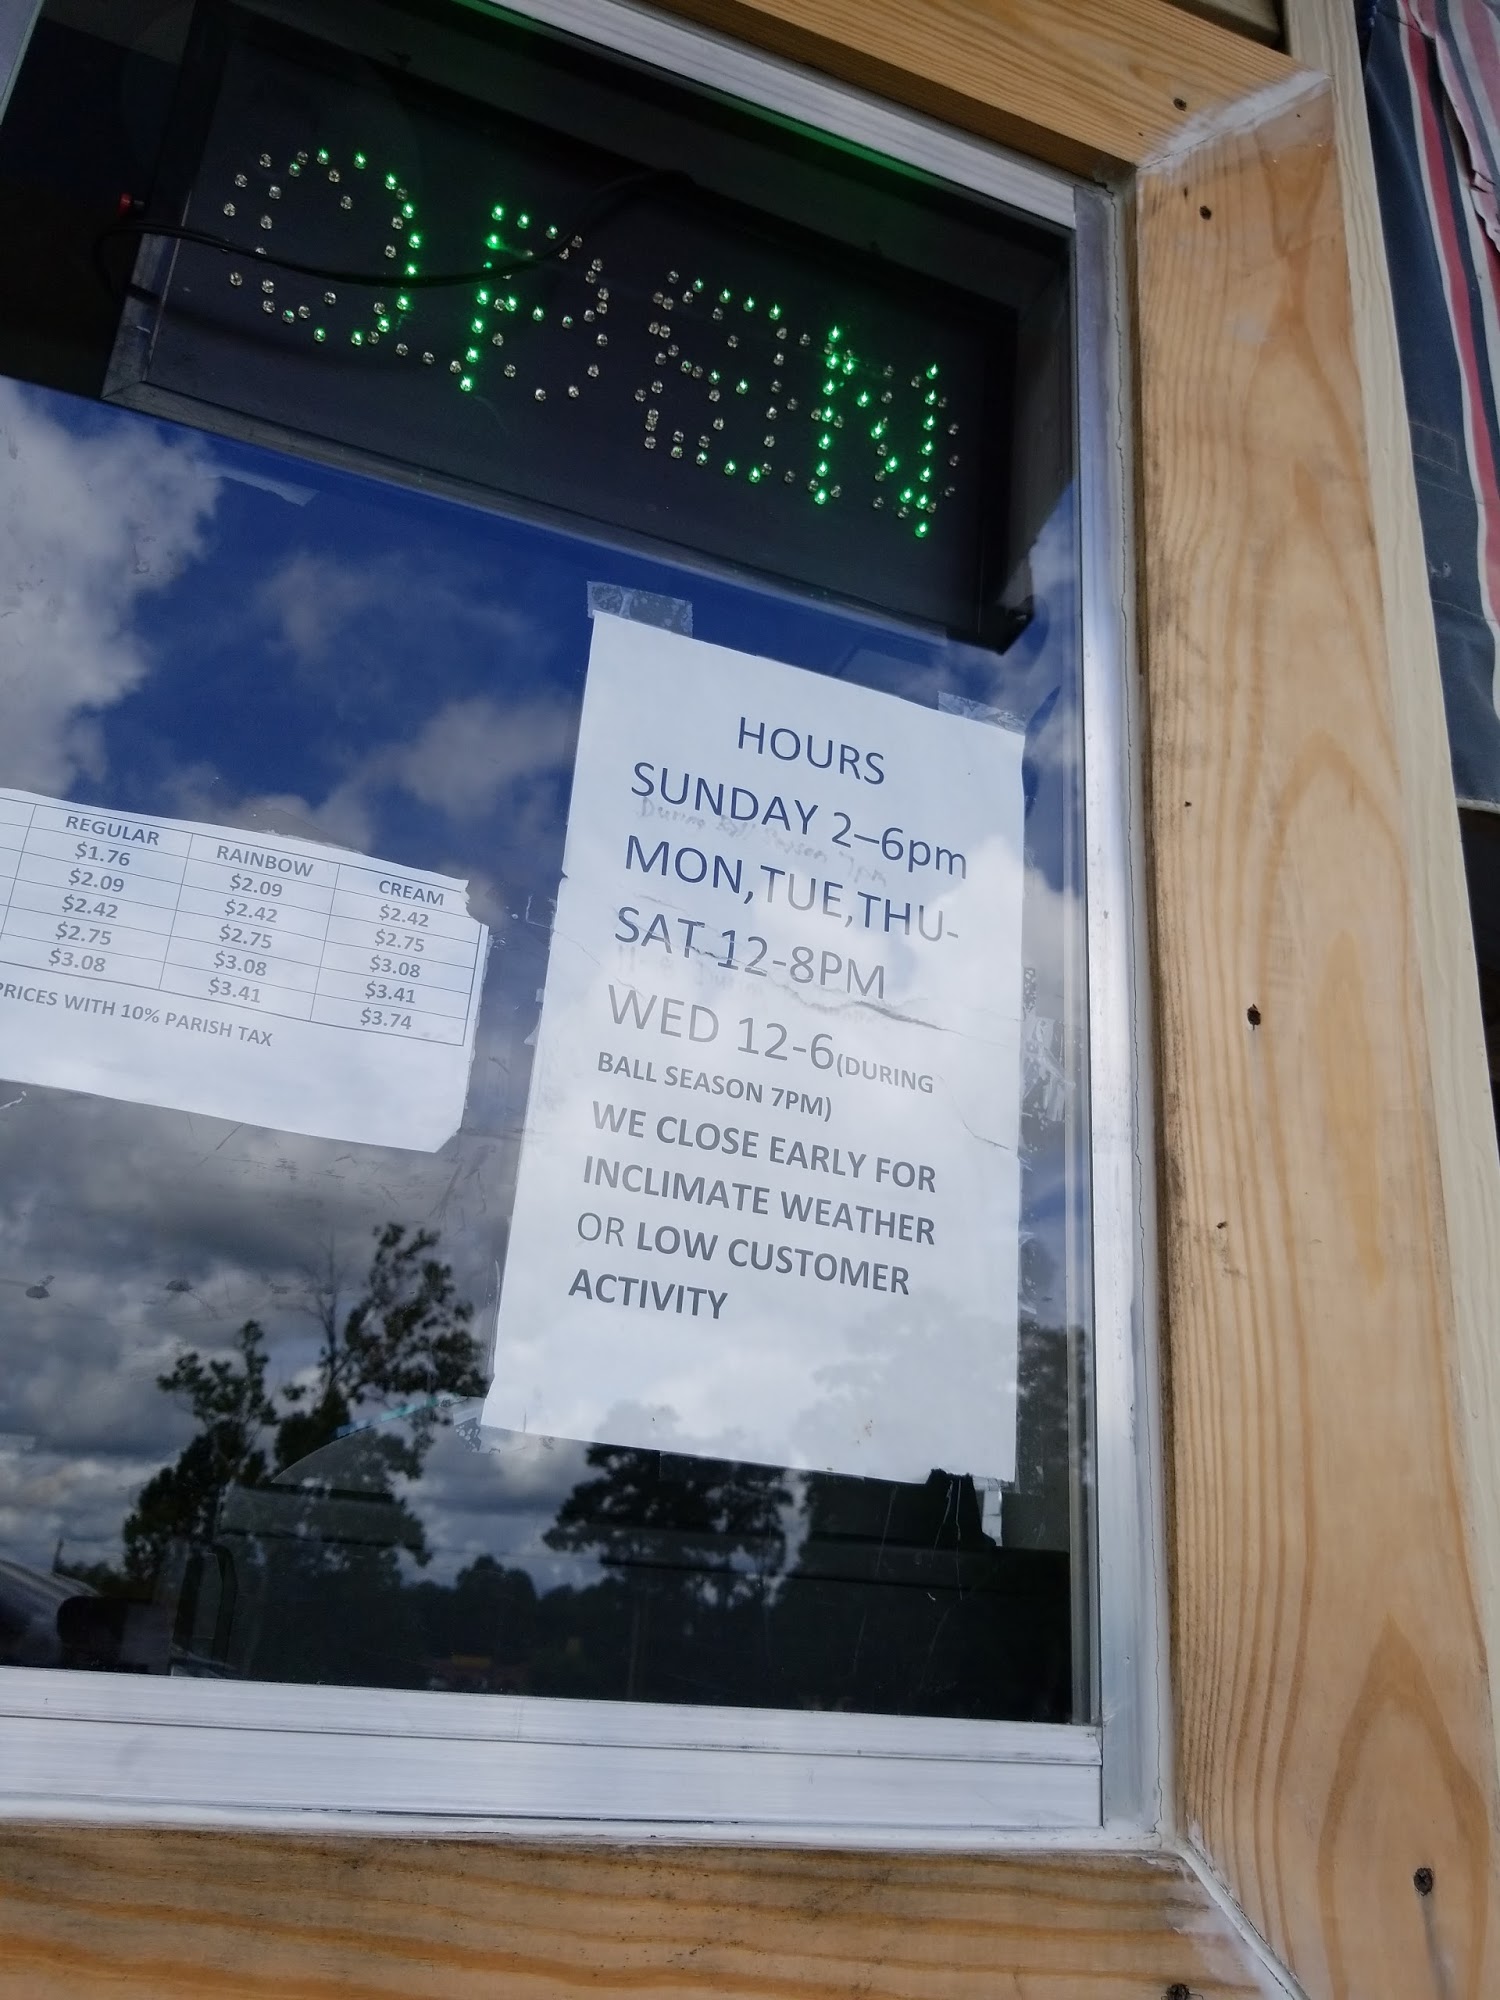 OPEN
HOURS
SUNDAY 2–6pm
MON,TUE,THU-
SAT 12-8PM
WED 12-6(DURING
BALL SEASON 7PM)
WE CLOSE EARLY FOR
INCLIMATE WEATHER
OR LOW CUSTOMER
ACTIVITY
REGULAR RAINBOW CREAM
$1.76 $2.09 $2.42
$2.09 $2.42 $2.75
$2.42 $2.75 $3.08
$2.75 $3.08 $3.41
$3.08 $3.41 $3.74
PRICES WITH 10% PARISH TAX